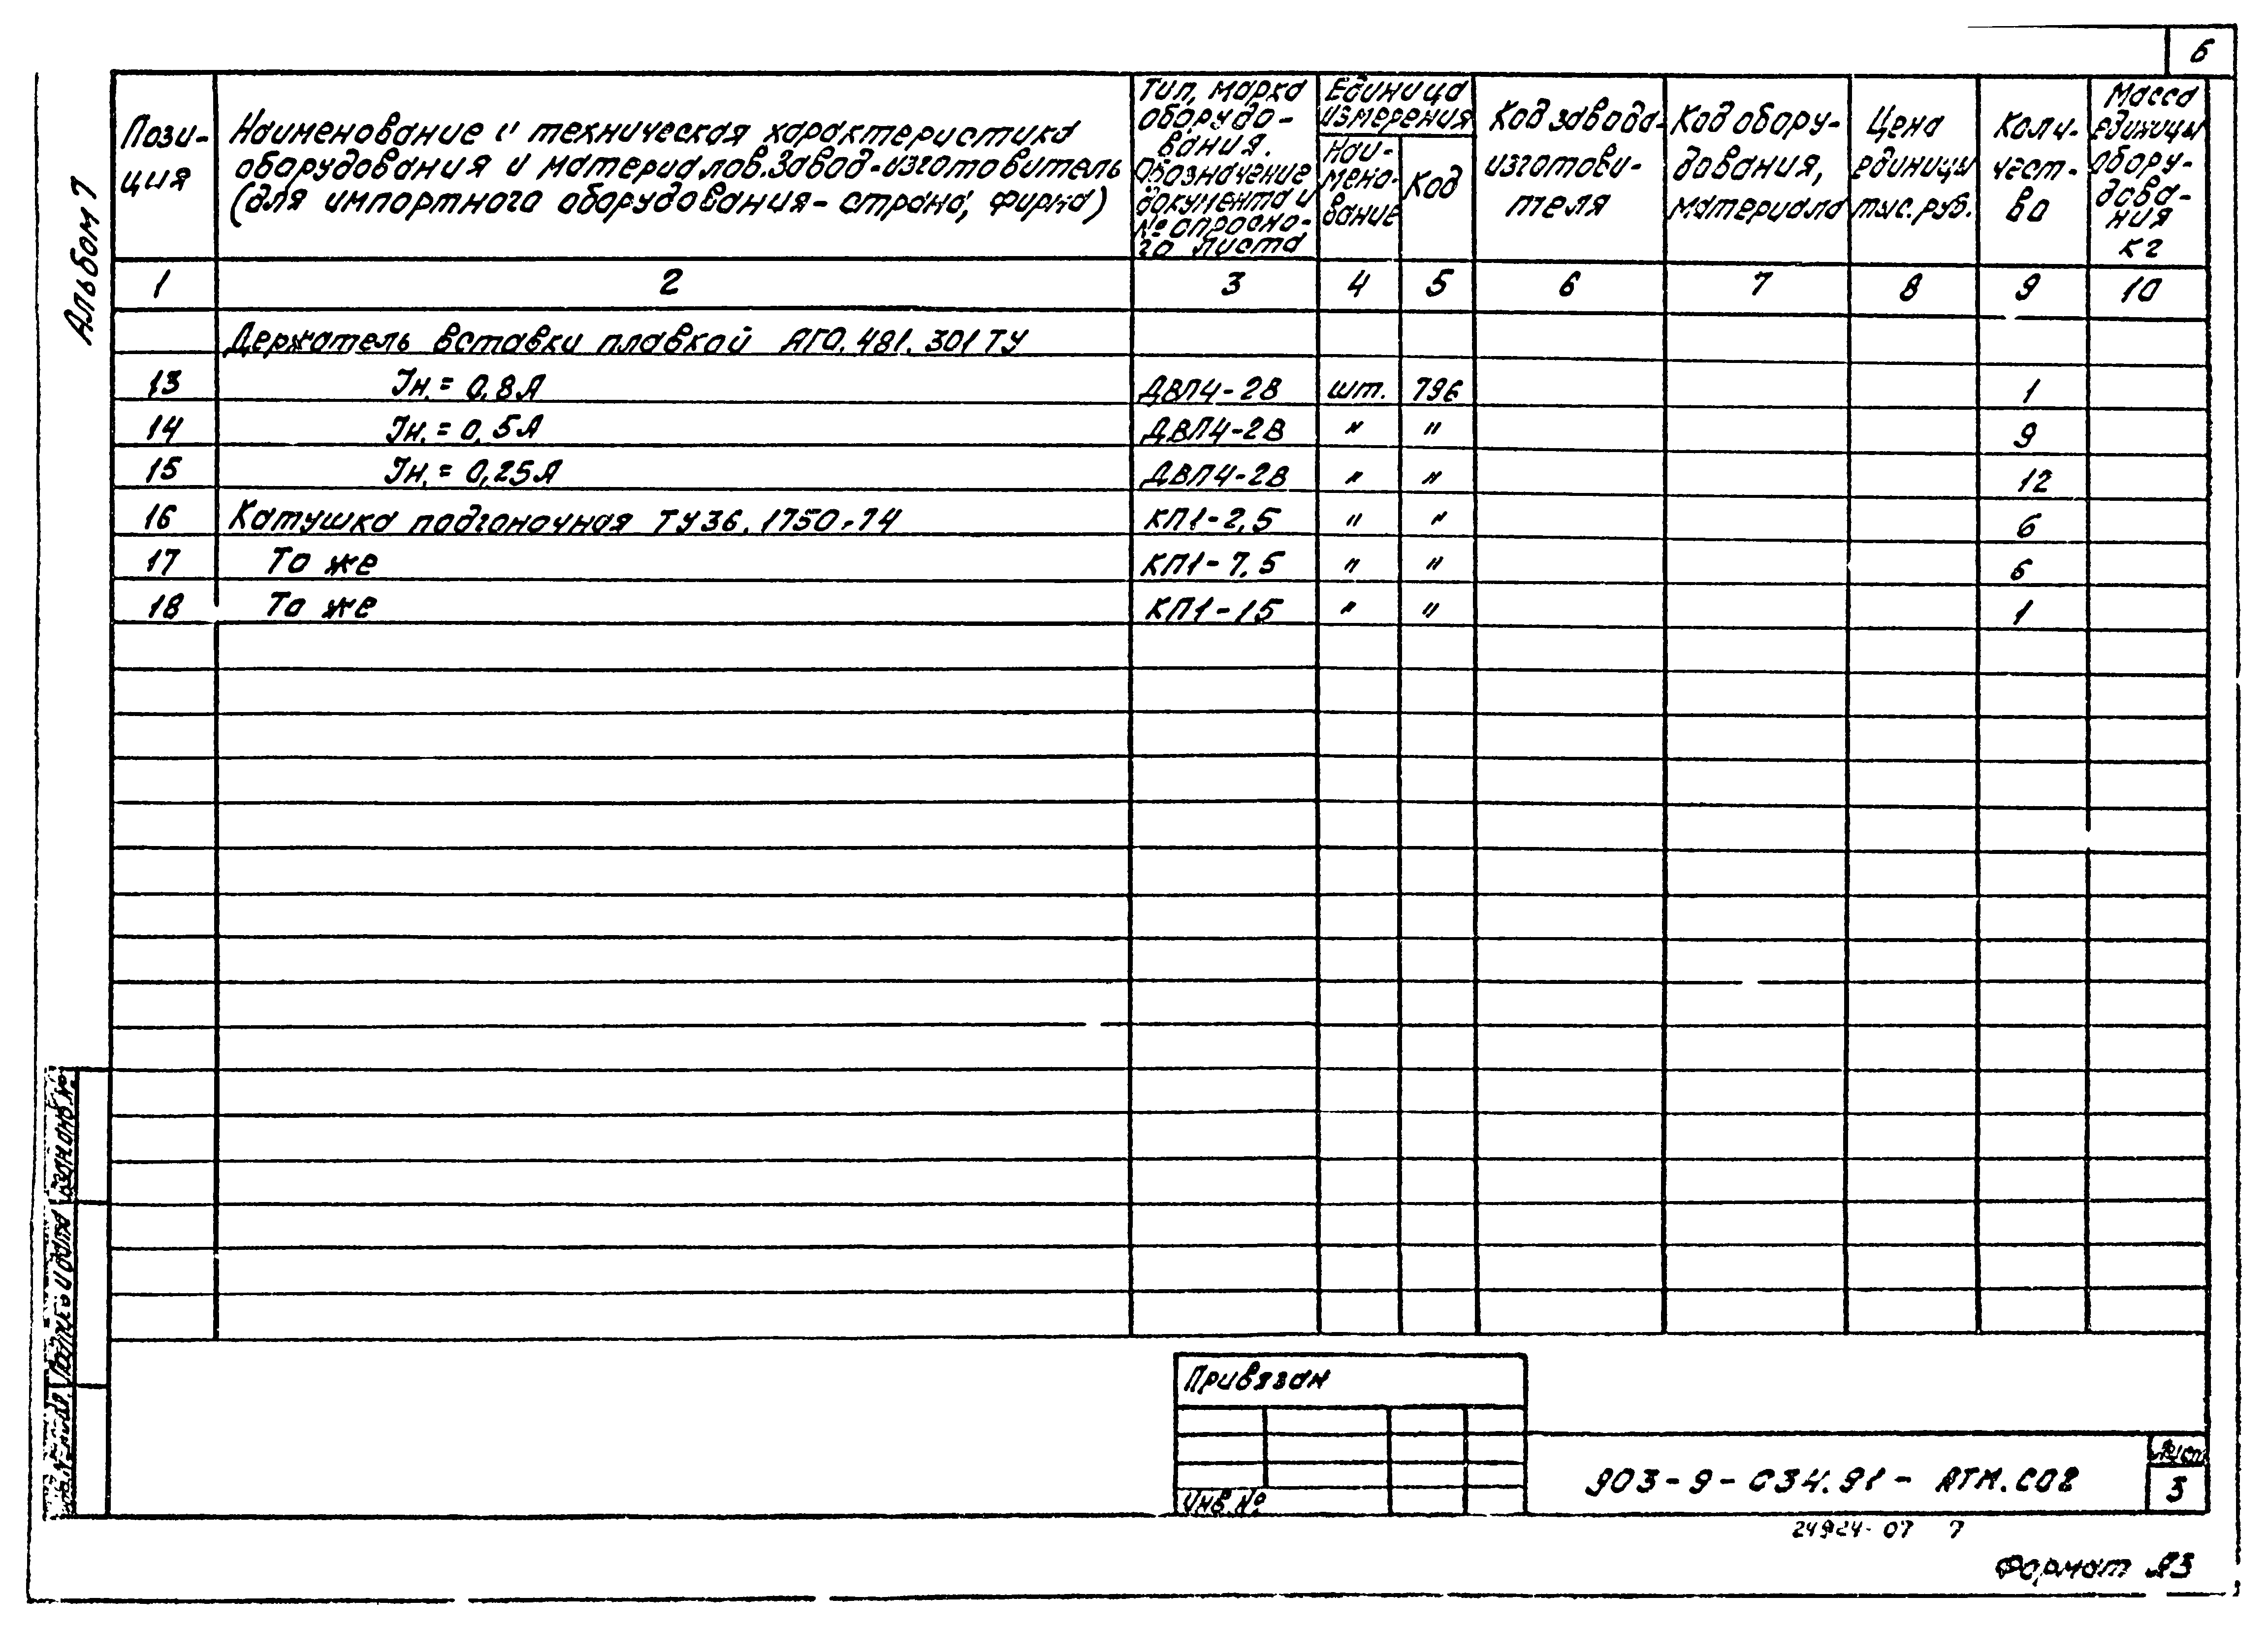 6
Альбом 7
Пози-
ция
Наименование и техническая характеристика
оборудования и материалов. Завод-изготовитель
(для импортного оборудования - страна, фирма)
Тип, марка
оборудо-
вания.
Обозначение
документа и
№ опросно-
го листа
Единица
измерения
Наи-
мено-
вание
Код
Код завода-
изготови-
теля
Код обору-
дования,
материала
Цена
единицы
тыс. руб.
Коли-
чест-
во
Масса
единицы
обору-
дова-
ния
кг
1 2 3 4 5 6 7 8 9 10
Держатель вставки плавкой АГО. 481. 301 ТУ
13 Iн. = 0,8А ДВП4-2В шт. 796 1
14 Iн. = 0,5А ДВП4-2В " " 9
15 Iн. = 0,25А ДВП4-2В " " 12
16 Катушка подгоночная ТУ36.1750-74 КП1-2,5 " " 6
17 То же КП1-7,5 " " 6
18 То же КП1-15 " " 1
Взам.инв.№
Подпись и дата
Инв.№ подл.
Привязан
Инв.№
903-9-034.91- АТМ.СО2
Лист
3
24924-07 7
Формат А3